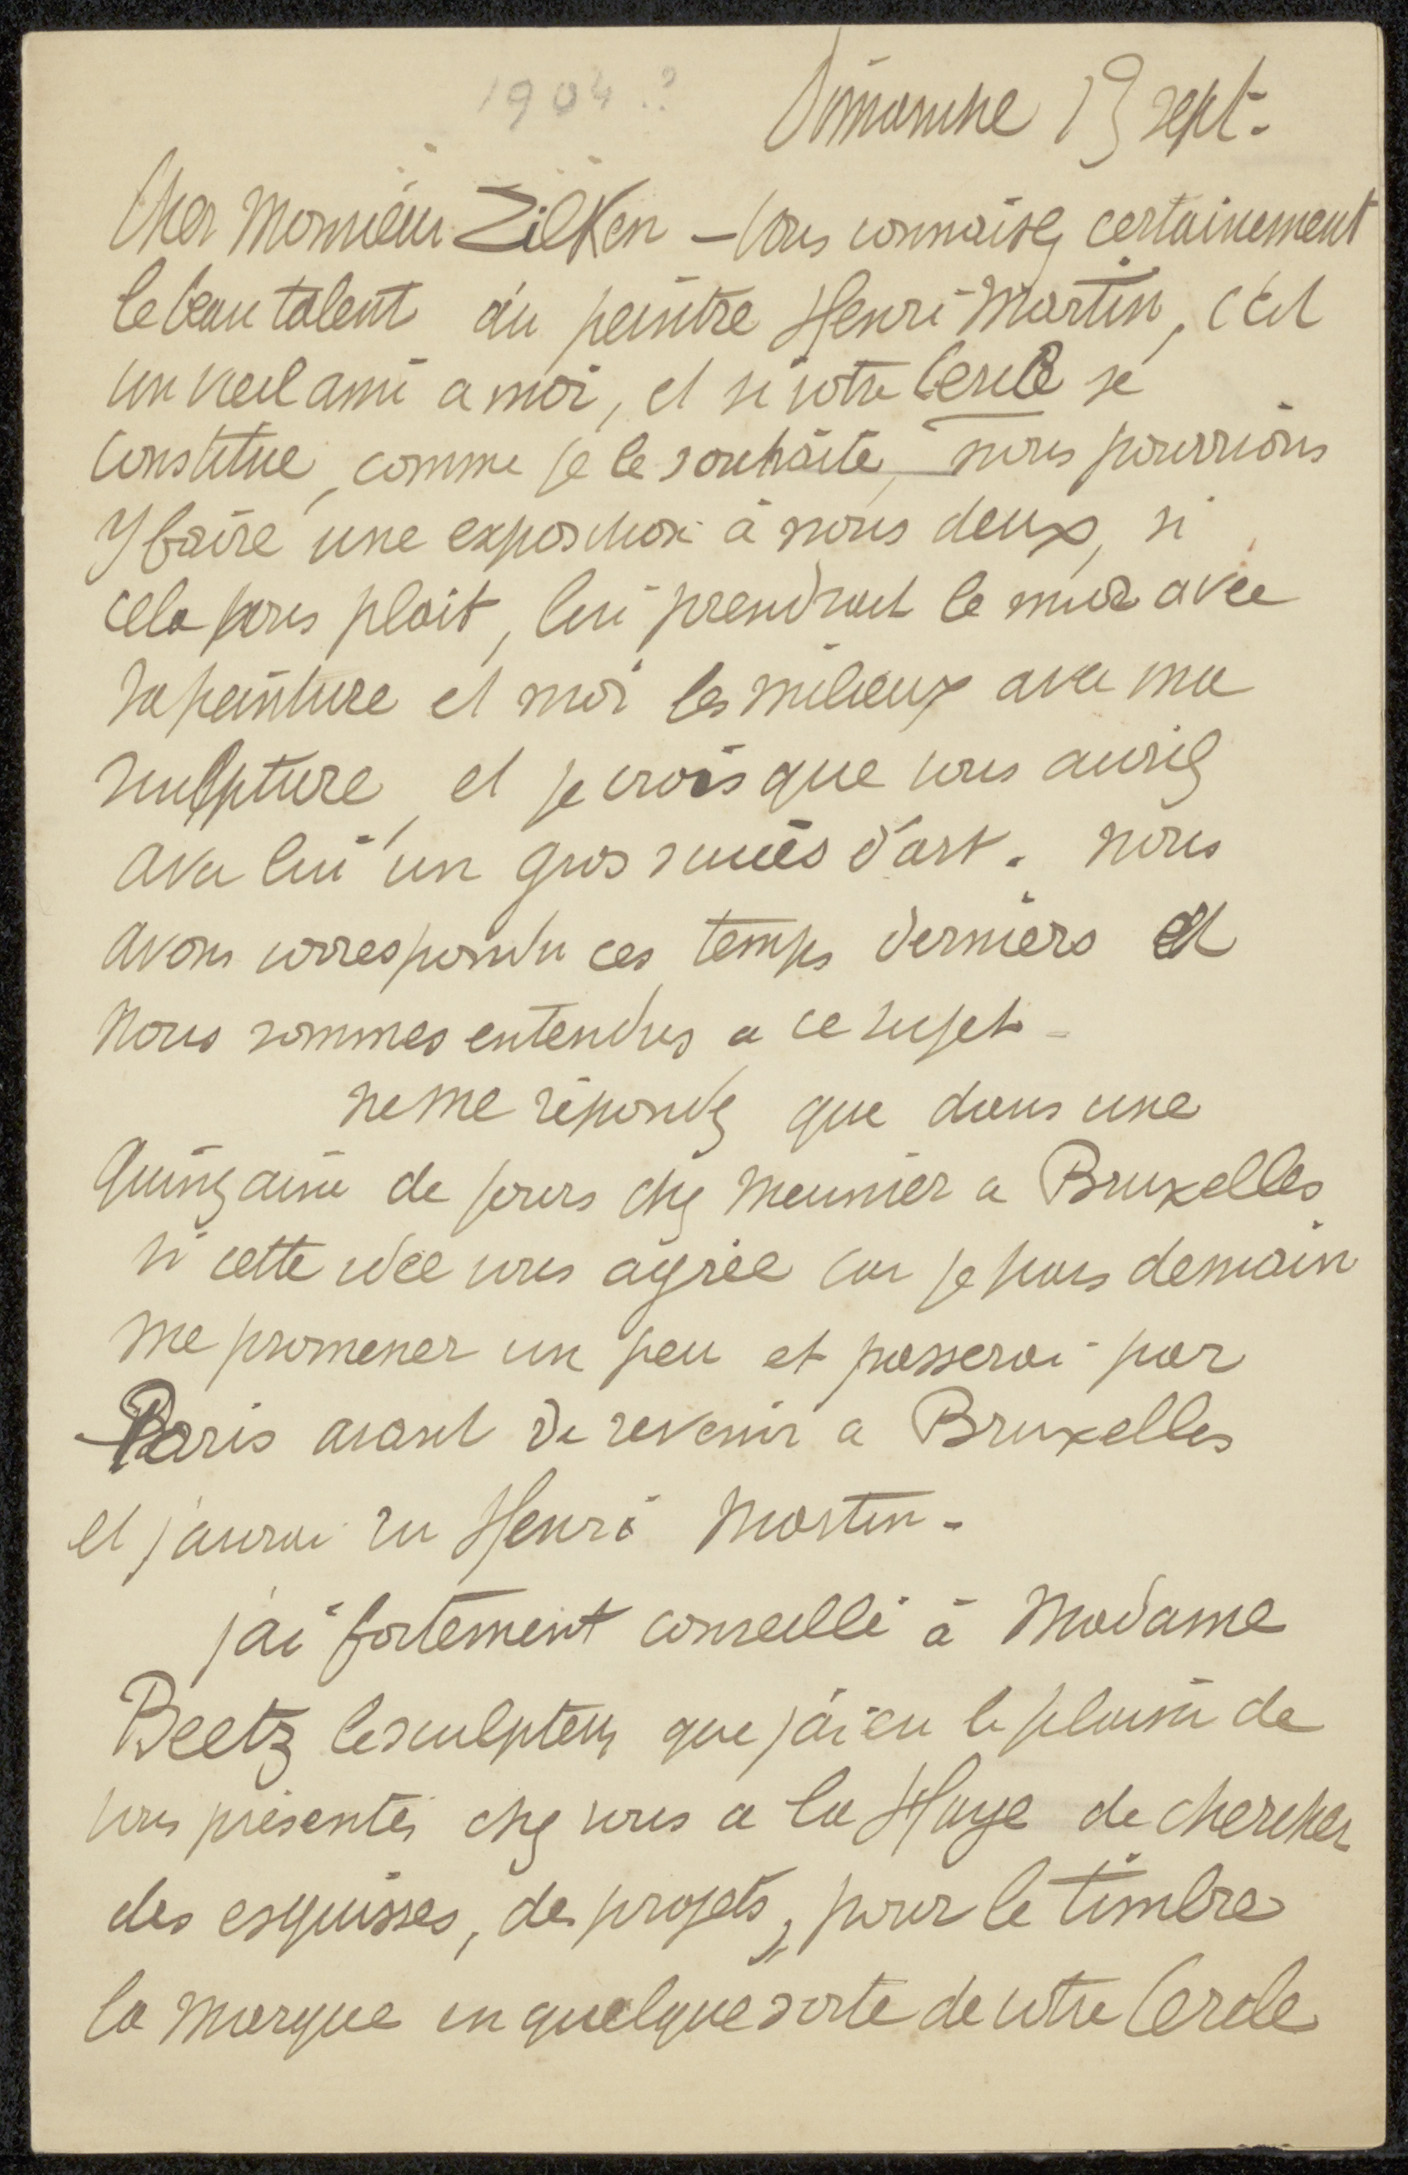 1904.?
Dimanche 19 sept.
Cher Monsieur Zilken – Vous connaisez certainement
le beau talent du peintre Henri Martin, c'est
un vieil ami a moi, et si votre Cercle se
constitue, comme je le souhaite, nous pourrions
y faire une exposition à nous deux, si
cela vous plait, lui prendrait le mur avec
sa peinture et moi les milieux avec ma
sculpture, et je crois que vous auriez
avec lui un gros succès d'art. Nous
avons correspondu ces temps derniers et
nous sommes entendus a ce sujet –
ne me répondez que dans une
quinzaine de jours chez Meunier a Bruxelles
si cette idée vous agrée car je pars demain
me promener un peu et passerai par
Paris avant de revenir a Bruxelles
et j'aurai vu Henri Martin –
j'ai fortement conseillé à Madame
Beetz le sculpteur que j'ai eu le plaisir de
vous présenter chez vous a la Haye de chercher
des esquisses, des projets, pour le timbre
la marque en quelque sorte de votre Cercle